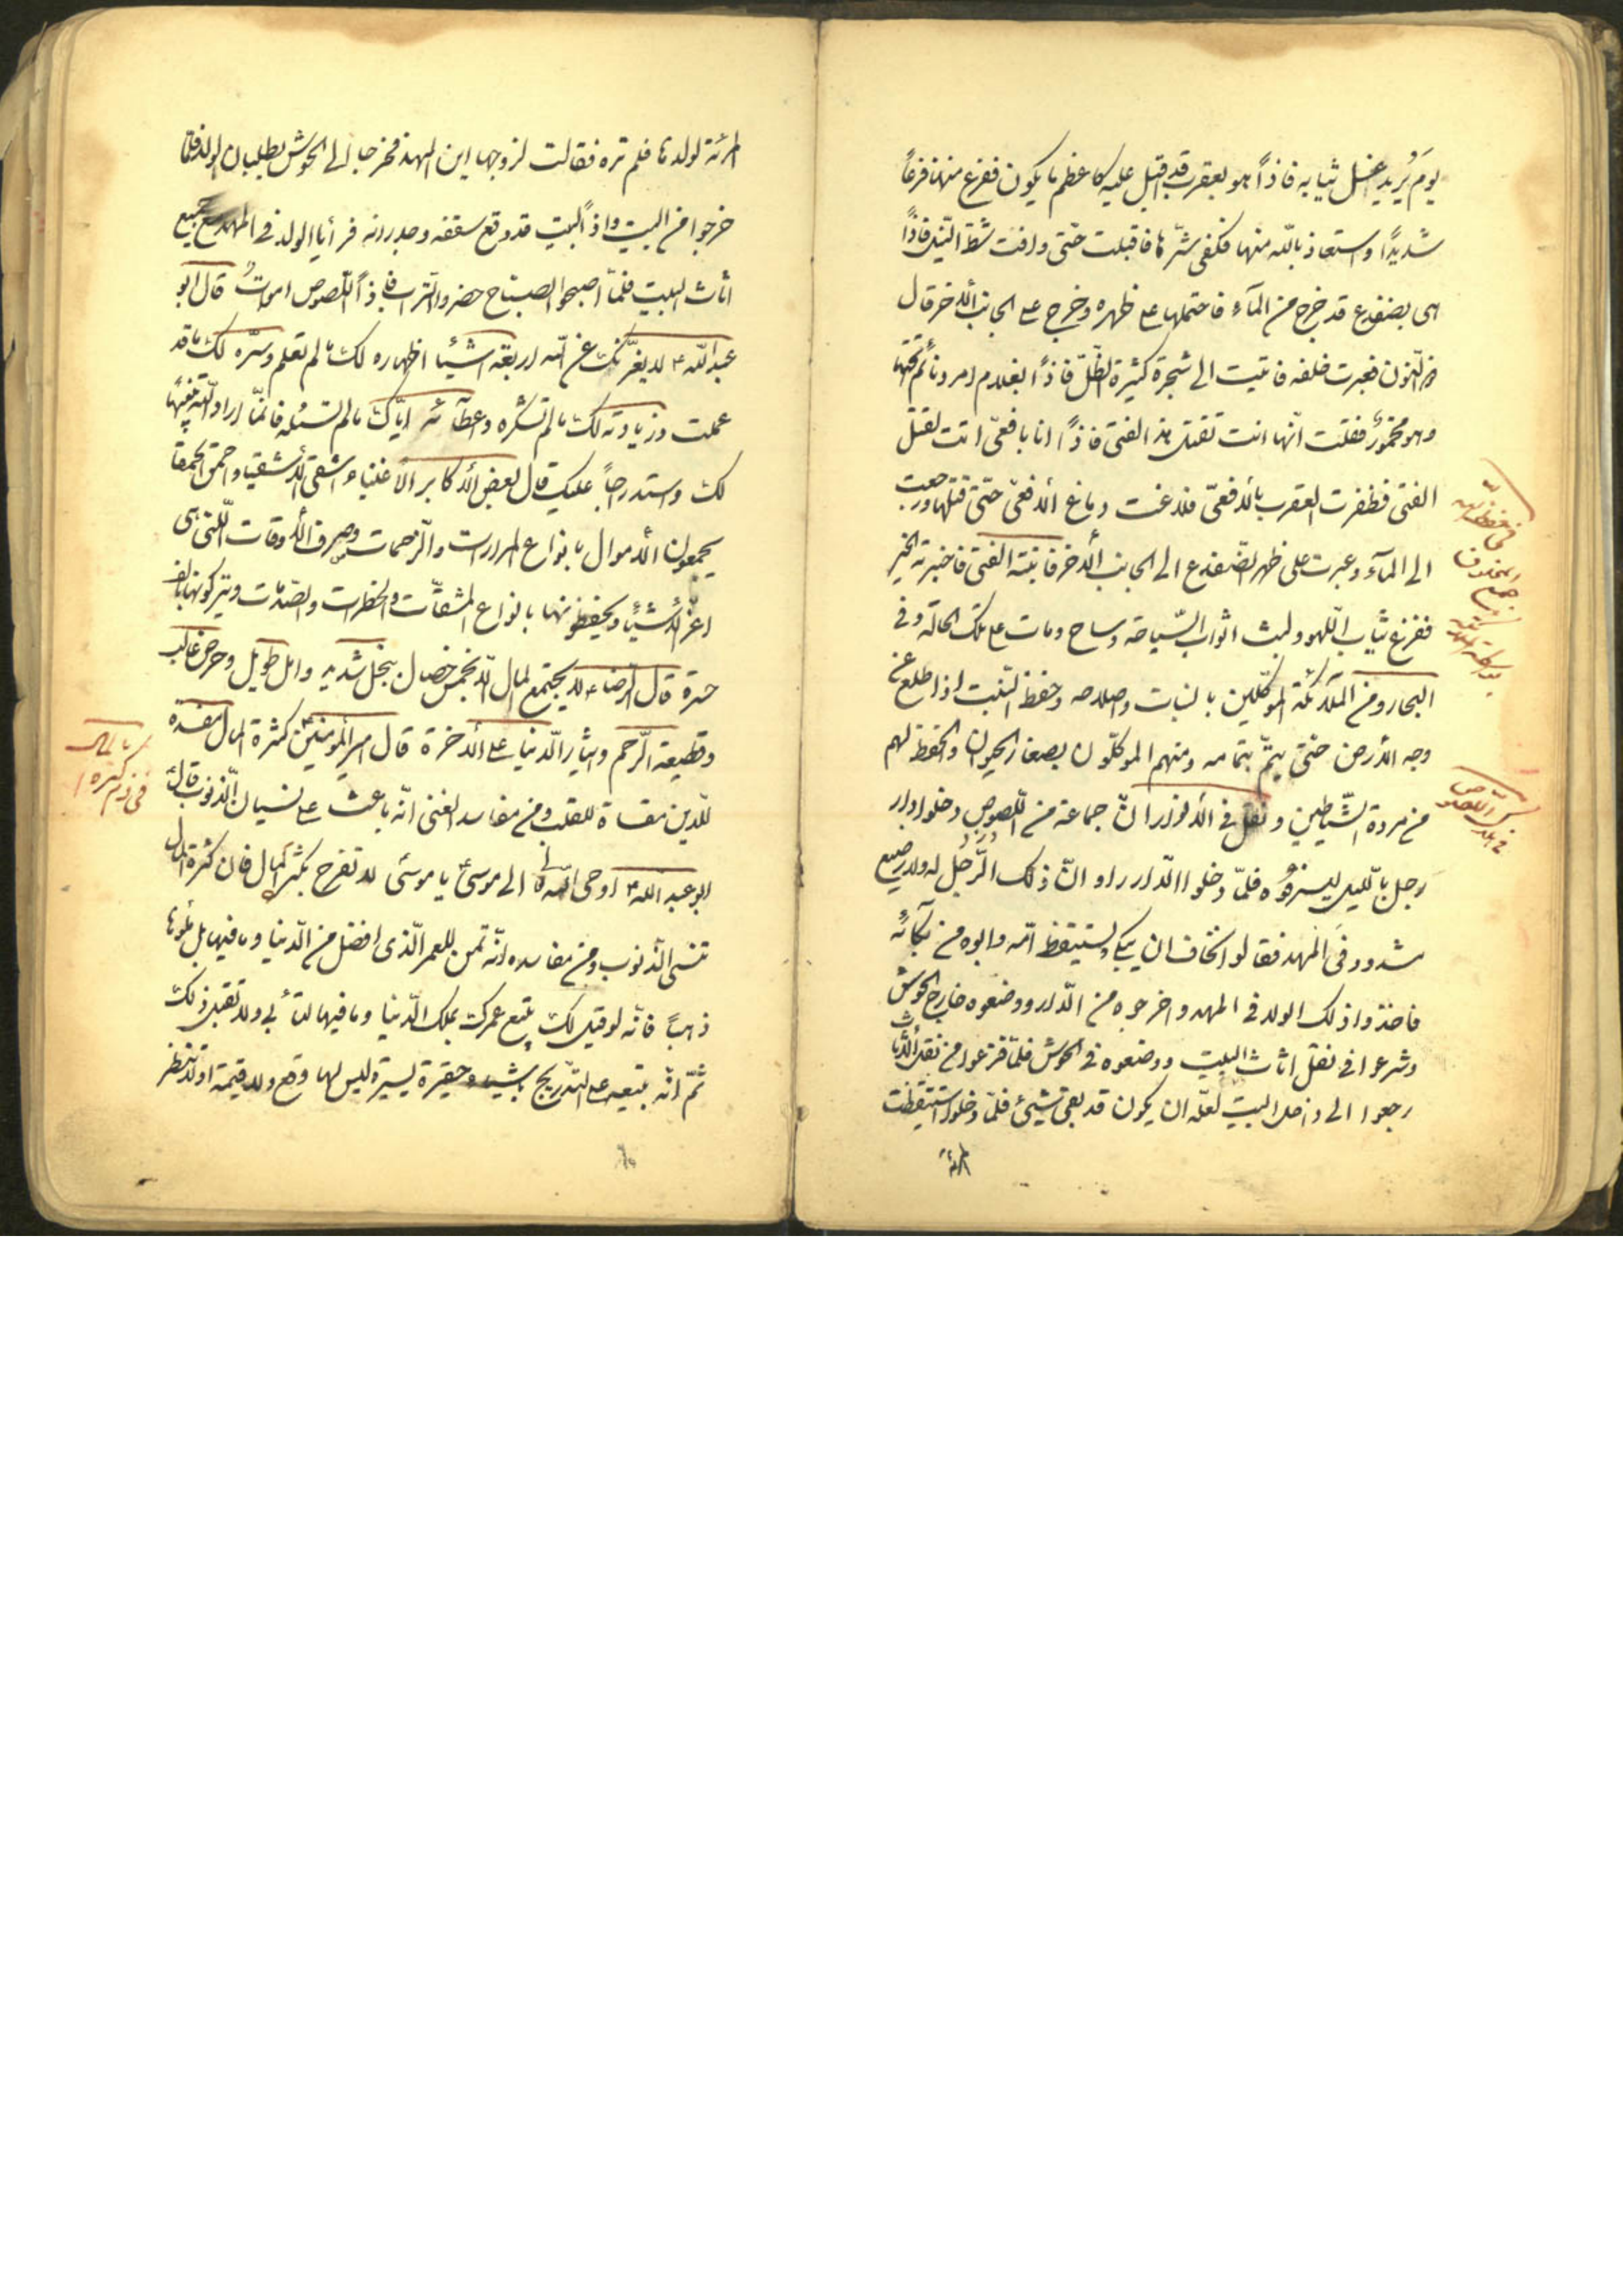 يوم يُريد غسل ثيابه فاذاً هو بعقرب قد اقبل عليه كاعظم ما يكون ففزع منها فزعاً
شديدًا واستعاذ بالله منها فكفى شرّها فاقبلت حتّى وافت شطّ النّيل فاذاً
هى بضفدع قد خرج من المآء فاحتملها على ظهره وخرج على الجانب الأخر قال
ذو النّون فعبرت خلفه فاتيت الى شجرة كثيرة الظّلّ فاذاً بغلام امرد نائم تحتها
وهو مخمورٌ فقلت انّها اتت لقتل هذ الفتى فاذاً انا بافعى اتت لقتل
الفتى فظفرت العقرب بالأفعى فلدغت دماغ الأفعى حتّى قتلها ورجعت
الى المآء وعبرت على ظهر الضّفدع الى الجانب الأخر فانبته الفتى فاخبرته الخبر
ففزع ثياب اللّهو ولبث اثواب السّياحة وساح ومات على تلك الحالة وفى
البحار ومن الملآئكة الموكّلين بالنبات واصلاحه وحفظ النّبت اذا طلع عن
وجه الأرض حتّى يتمّ بتمامه ومنهم الموكّلون بصغار الحيوان والحفظ لهم
من مردة الشّياطين ونقل فى الأنوار انّ جماعة من اللّصوص دخلوا دار
رجل باللّيل ليسرقوه فلمّا دخلوا الدّار راو انّ ذلك الرّجل له ولد رضيع
مشدود فى المهد فقالوا نخاف ان يبكى ويستيقظ امّه وابوه من بكآئه
فاخذوا ذلك الولد فى المهد واخرجوه من الدّار ووضعوه خارج الحوش
وشرعوا فى نقل اثاث البيت ووضعوه فى الحوش فلمّا فزعوا من نقل الأثاث
رجعوا الى داخل البيت لعلّه ان يكون قد بقى شيئ فلمّا دخلوا استيقظت
المرئة
المرئة لولدها فلم تره فقالت لزوجها اين المهد فخرجا الى الحوش يطلبان الولد فلمّا
خرجوا من البيت واذاً البيت قد وقع سقفه وجدرانه فرأيا الولد فى المهد مع جميع
اثاث البيت فلمّا اصبحوا الصباح حضروا التراب فاذاً اللّصوص امواتٌ قال ابو
عبد الله ع لا يغرّنّك عن الله اربعة اشيئا اظهاره لك ما لم تعلم وستره لك ما قد
عملت وزيادته لك ما لم تشكره وعطآئه ايّاك ما لم تسئله فانّما اراد الله تنبيهًا
لك واستدراجاً عليك قال بعض الأكابر الأغنياء اشقى الأشقيا واحمق الحمقا
يجمعون الأموال بانواع المرارات والزّحمات وصرف الأوقات اللّتى هى
اعزّ الأشيئا ويحفظونها بانواع المشقّات والخطرات والصّدمات ويتركونها بالف
حسرة قال الرّضا ع لا يجتمع المال الّا بخمس خصال ببخل شديد وامل طويل وحرص غالب
وقطيعة الرّحم وايثار الدّنيا على الأخرة قال امير المومنين ع كثرة المال مفسدة
للّدين مقساة للقلب ومن مفاسد الغنى انّه باعث على نسيان الذّنوب قال
ابو عبد الله ع اوحى الله الى موسى يا موسى لا تفرح بكثرة المال فان كثرة المال
تنسى الذّنوب ومن مفاسده انّه ثمن للعمر الّذى افضل من الدّنيا وما فيها بل ملوها
ذهباً فانّه لو قيل لك بع عمرك بملك الدّنيا وما فيها لتأبى ولا تقبل ذلك
ثمّ انّه تبيعه على التّدريج باشياء حقيرة يسيرة ليس لها وقع ولا قيمة او لا تنظر
فى ذم كثرة المال